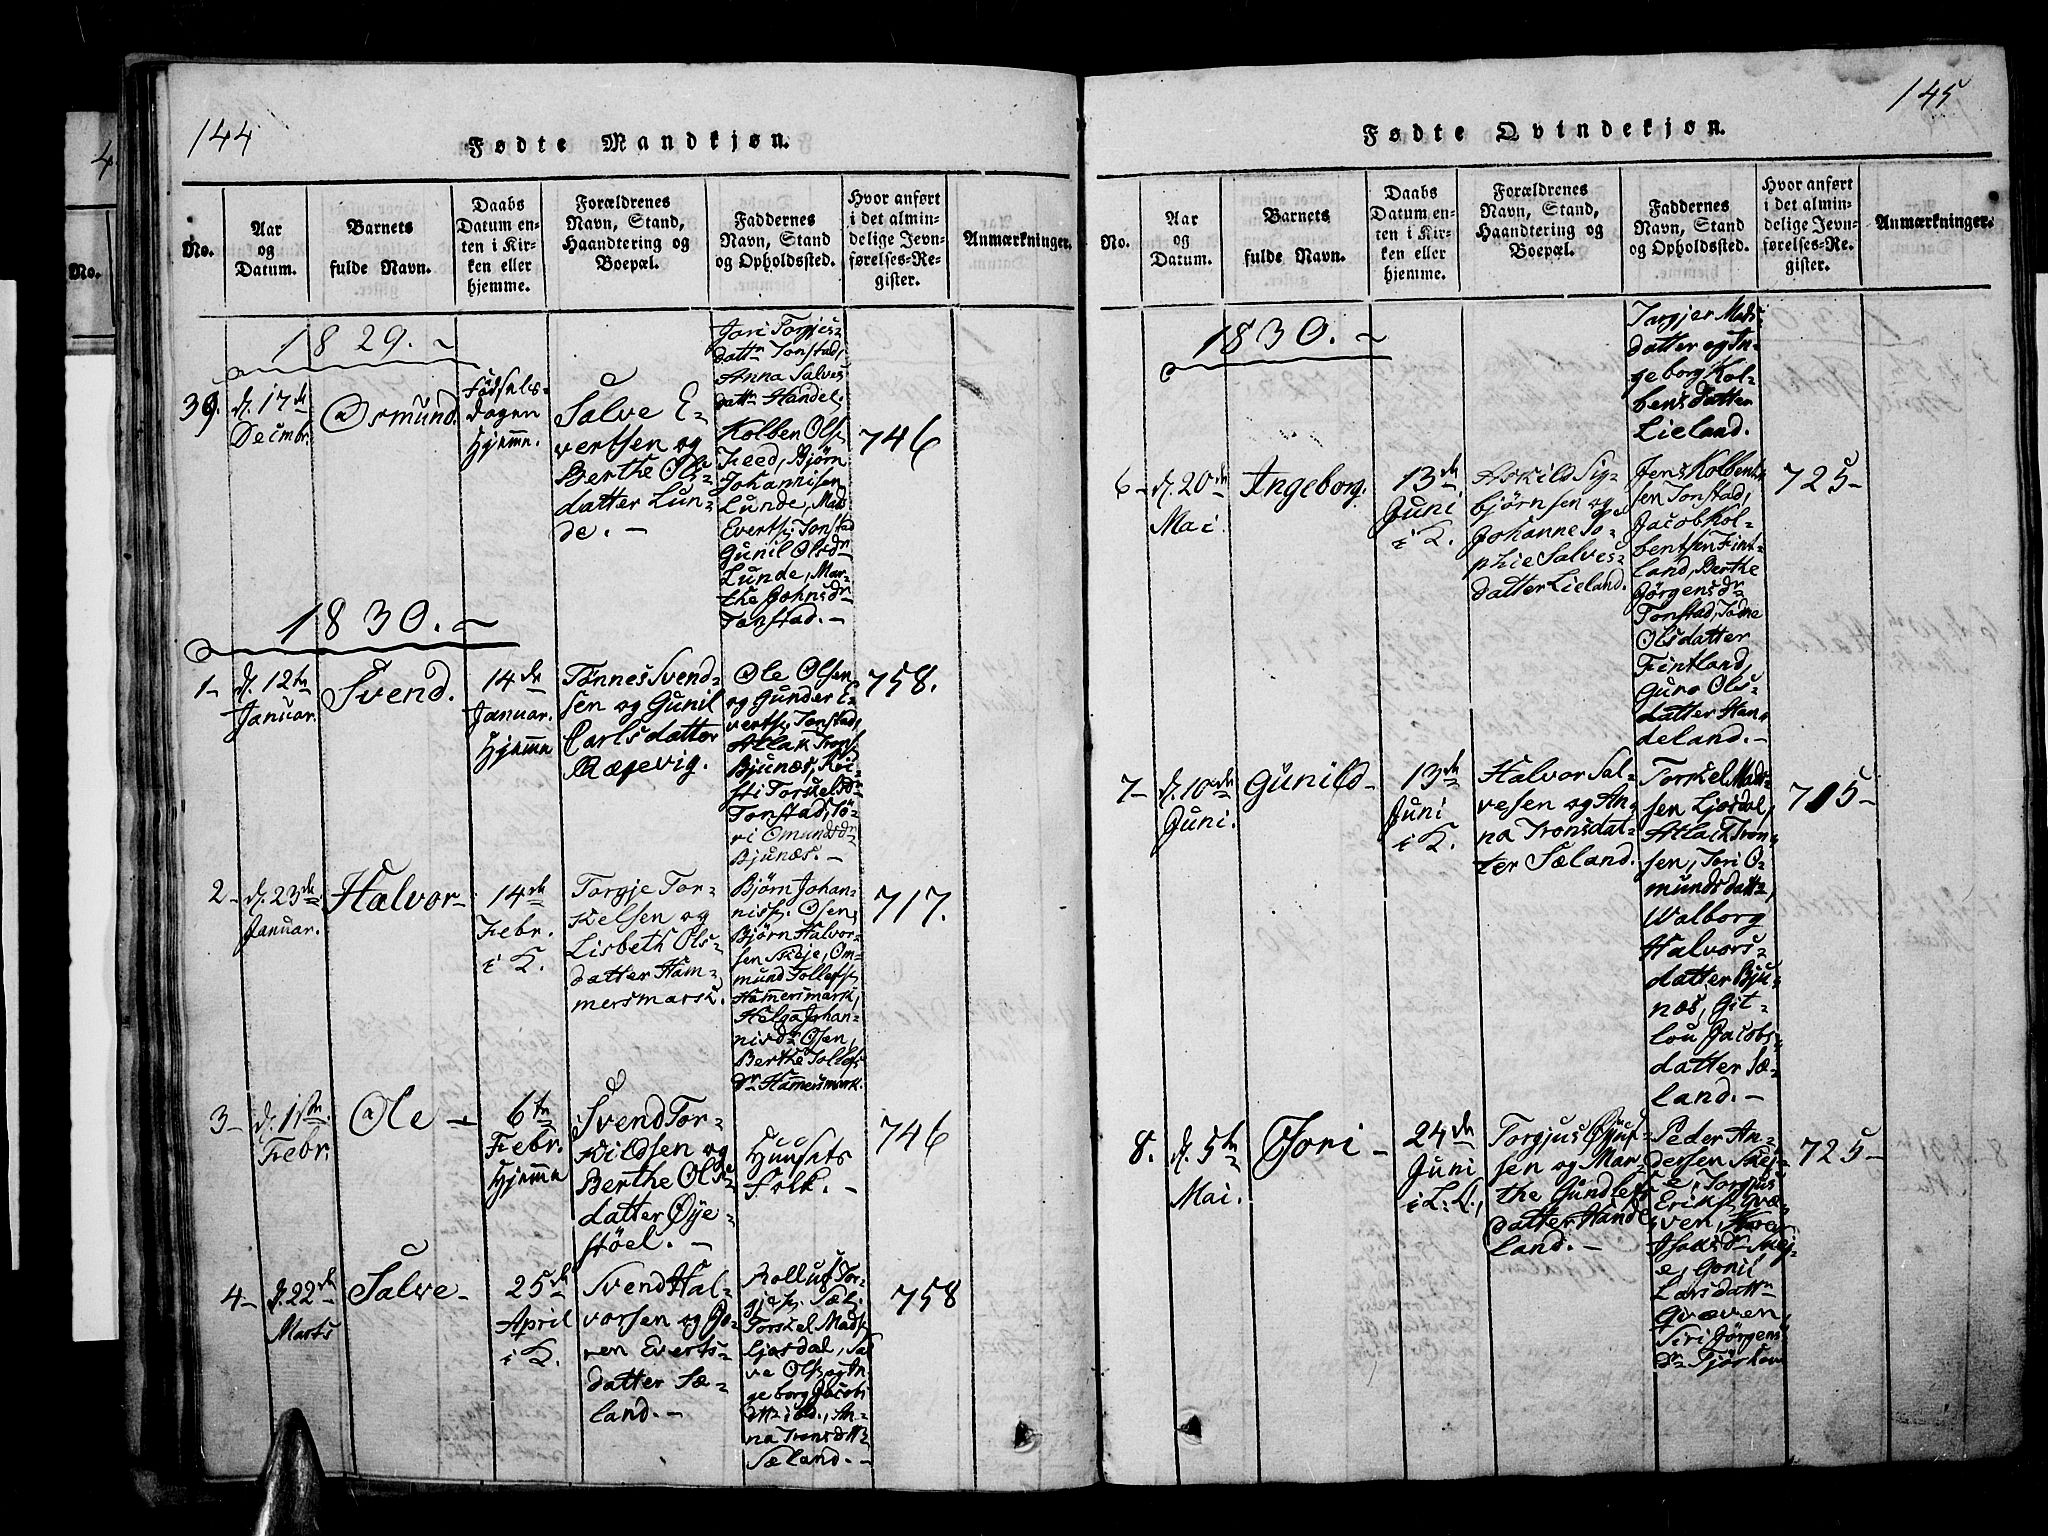 144
Fødte Mandkjøn.
No.
Aar
og
Datum.
Barnets
fulde Navn.
Daabs
Datum en-
ten i Kir-
ken eller
hjemme.
Forældrenes
Navn, Stand,
Haandtering og
Boepæl.
Faddernes
Navn, Stand
og Opholdssted.
Hvor anført
i det almin-
delige Jevn-
førelses-Re-
gister.
Anmærkninger.
1829.
39.
d. 17de
Decmbr.
Osmund.
Fødsels-
dagen
Hjemme.
Salve E-
vertsen og
Berthe Ols-
datter Lun-
de. -
Jori Torgjus-
dattr Tonstad,
Anna Salves
dattr Handel,
Kolben Ols.
Feed, Bjørn
Johannisen
Lunde, Mads
Everts. Tonstad
Gunil Olsdr
Lunde, Mar-
the Johnsdr
Tonstad. -
746
1830.
1-
d. 12te
Januar.
Svend.
14de
Januar.
Hjemme
Tønnes Svend-
sen og Gunil
Carlsdatter
Ræsevig.
Ole Olsen
og Gunder E-
verts. Tonstad,
Atlak Trons.
Bjunæs, Kri-
sti Torskelsdr
Tonstad, Tø-
ri Omundsdr
Bjunæs. -
758.
2-
d. 23de
Januar.
Halvor-
14de
Febr.
i K.
Torgje Tor-
skelsen og
Lisbeth Ols-
datter Ham-
mersmark.
Bjørn Johan-
niss. Osen,
Bjørn Halvor-
sen Skeje, Om-
mund Tollefs.
Hamersmark,
Helga Johan-
nisdr Osen,
Berthe Tollefs
dr Hamersmark.
717.
3-
d. 1ste
Febr.
Ole -
6te
Febr.
Hjemme
Svend Tor-
kildsen og
Berthe Ols-
datter Øye-
støel. -
Huusets
Folk. -
746
4-
d. 22de
Marts
Salve-
25de
April
i K.
Svend Hal-
vorsen og Go-
ren Everts-
datter Sæ-
land. -
Rolluf Tor-
gjes. Sæl.
Torskel Mads.
Ljosdal, Sal
ve Ols. og In
geborg Jacobs
dtr ibd., An-
na Tronsdttr
Sæland. -
758
145
Fødte Qvindekjøn.
No.
Aar
og
Datum.
Barnets
fulde Navn.
Daabs
Datum en-
ten i Kir-
ken eller
hjemme.
Forældrenes
Navn, Stand,
Haandtering og
Boepæl.
Faddernes
Navn, Stand
og Opholdssted.
Hvor anført
i det almin-
delige Jevn-
førelses-Re-
gister.
Anmærkninger.
1830.
Targjer Mads-
datter og In-
geborg Kol-
bensdatter
Lieland.
6-
d. 20de
Mai
Ingeborg.
13de
Juni
i K.
Askild Sig-
bjørnsen og
Johanne So-
phie Salves-
datter Lieland.
Jens Kolbent-
sen Tonstad,
Jacob Kol-
bentsen Fint-
land, Berthe
Jørgensdr
Tonstad, Tone
Olsdatter
Fintland,
Guro Ols-
datter Han-
deland. -
725-
7-
d. 10de
Juni.
Gunild-
13de
Juni
i K.
Halvor Sal-
vesen og An-
na Tronsdat-
ter Sæland.
Torskel Mads-
sen Ljosdal,
Atlach Tron-
sen, Tori O-
mundsdattr,
Walborg
Halvors-
datter Bju-
næs, Git-
lou Jacobs-
datter Sæ-
land. -
715-
8.
d. 5te
Mai.
Jori -
24de
Juni
i L. Q.,
Torgjus Øjuf-
sen og Mar-
the Gundlefs
datter Hande-
land. -
Peder An-
dersen Skej-
e, Torgjus
Eriks. Qvæ-
ven, Karen
Isaksdr Skej-
e, Gonil
Larsdattr
Qvæven,
Siri Jørgens
dr Tjørhom
725-